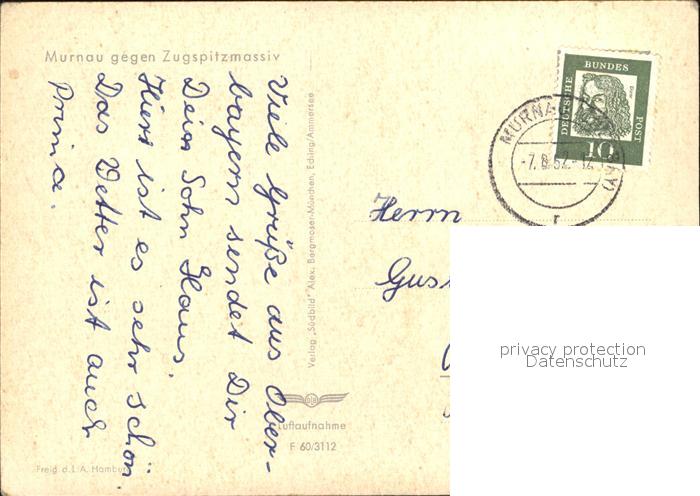 Murnau gegen Zugspitzmassiv
Viele Grüße aus Ober-
bayern sendet Dir
Dein Sohn Klaus.
Hier ist es sehr schön
Das Wetter ist auch
prima.
Verlag „Südbild" Alex. Bergmoser-München, Eching/Ammersee
Luftaufnahme
F 60/3112
Freig. d. L. A. Hamburg
DEUTSCHE
BUNDES
POST
10
MURNAU
Herrn
privacy protection
Datenschutz